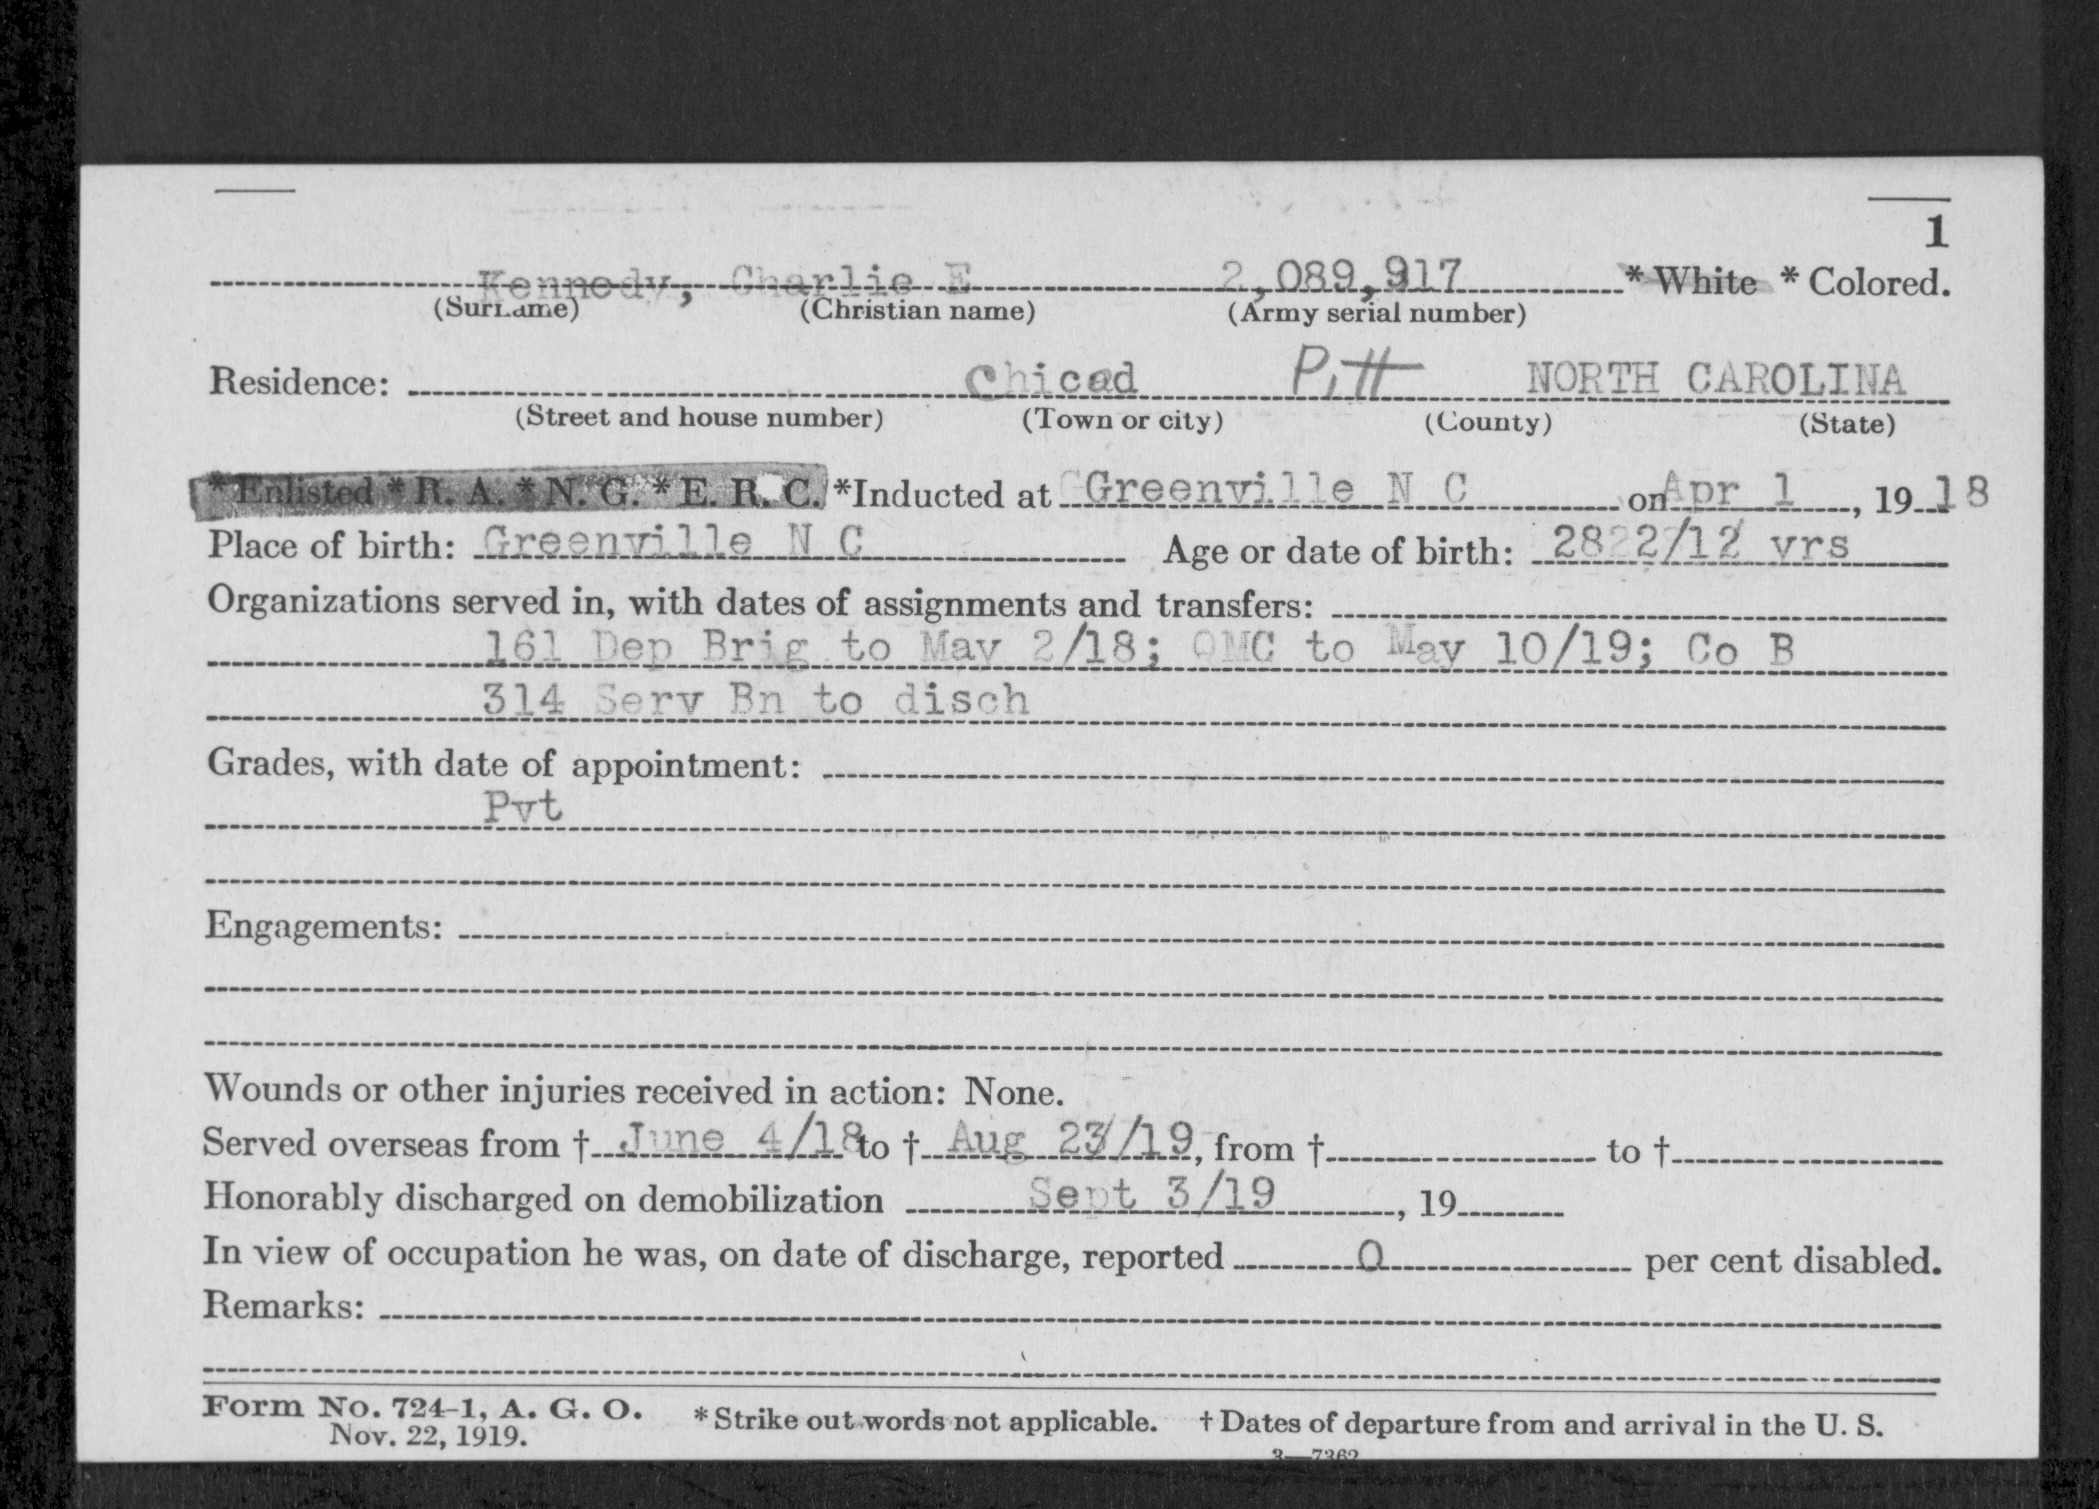 1
Kennedy, Charlie E 2,089,917 * White * Colored.
(Surname) (Christian name) (Army serial number)
Residence: Chicod Pitt NORTH CAROLINA
(Street and house number) (Town or city) (County) (State)
*Enlisted *R. A. *N. G. *E. R. C. *Inducted at Greenville N C on Apr 1, 19 18
Place of birth: Greenville N C Age or date of birth: 28 2/12 yrs
Organizations served in, with dates of assignments and transfers:
161 Dep Brig to May 2/18; QMC to May 10/19; Co B
314 Serv Bn to disch
Grades, with date of appointment:
Pvt
Engagements:
Wounds or other injuries received in action: None.
Served overseas from † June 4/18 to † Aug 23/19, from † to †
Honorably discharged on demobilization Sept 3/19, 19
In view of occupation he was, on date of discharge, reported 0 per cent disabled.
Remarks:
Form No. 724-1, A. G. O. *Strike out words not applicable. † Dates of departure from and arrival in the U. S.
Nov. 22, 1919.
3—7362